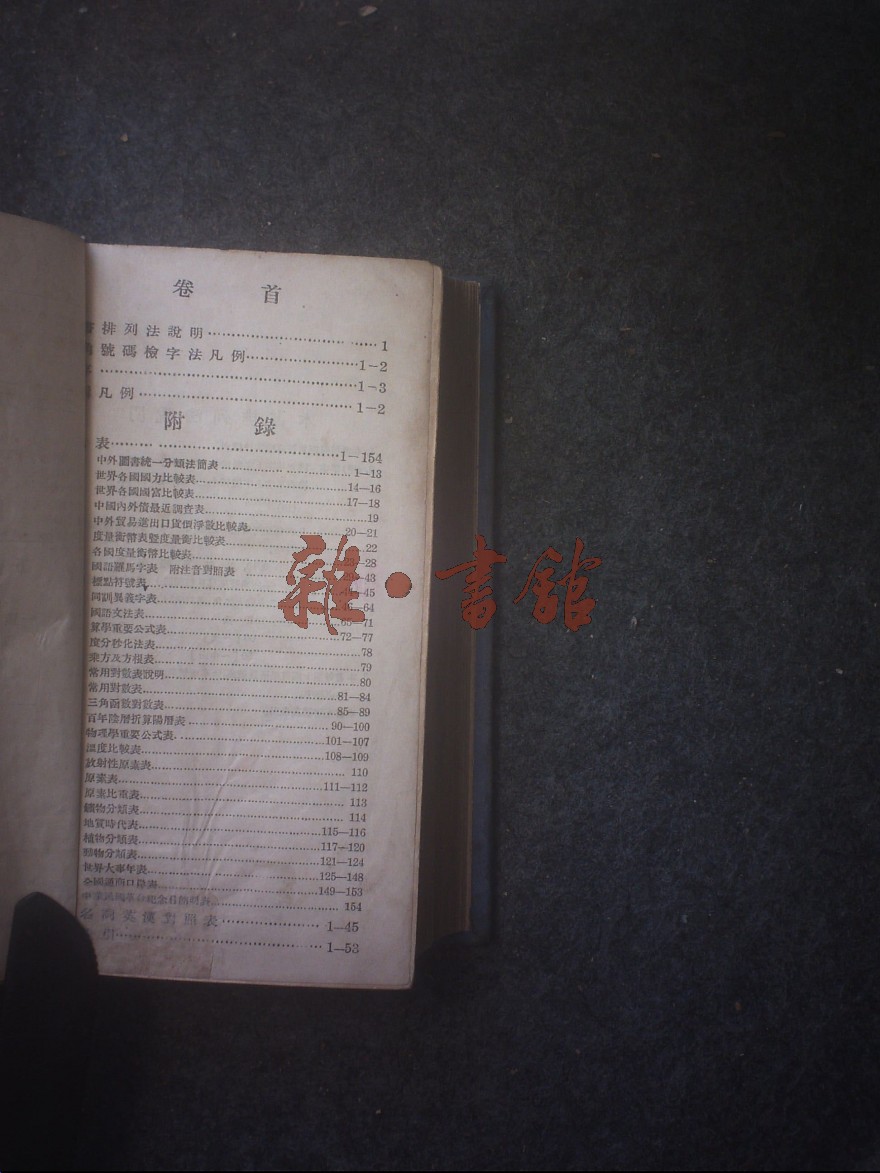 卷 首
排列法說明 1
號碼檢字法凡例 1-2
1-3
凡例 1-2
附 錄
表 1-154
中外圖書統一分類法簡表 1-13
世界各國國力比較表 14-16
世界各國國富比較表 17-18
中國內外債最近調查表 19
中外貿易進出口貨價淨數比較表 20-21
度量衡幣表暨度量衡比較表 22
各國度量衡幣比較表 -28
國語羅馬字表 附注音對照表 -43
標點符號表 -45
同訓異義字表 -64
國語文法表 -71
算學重要公式表 72-77
度分秒化法表 78
乘方及方根表 79
常用對數表說明 80
常用對數表 81-84
三角函數對數表 85-89
百年陰曆折算陽曆表 90-100
物理學重要公式表 101-107
溫度比較表 108-109
放射性原素表 110
原素表 111-112
原素比重表 113
鑛物分類表 114
地質時代表 115-116
植物分類表 117-120
動物分類表 121-124
世界大事年表 125-148
全國通商口岸表 149-153
154
名詞英漢對照表 1-45
引 1-53
雜·書館